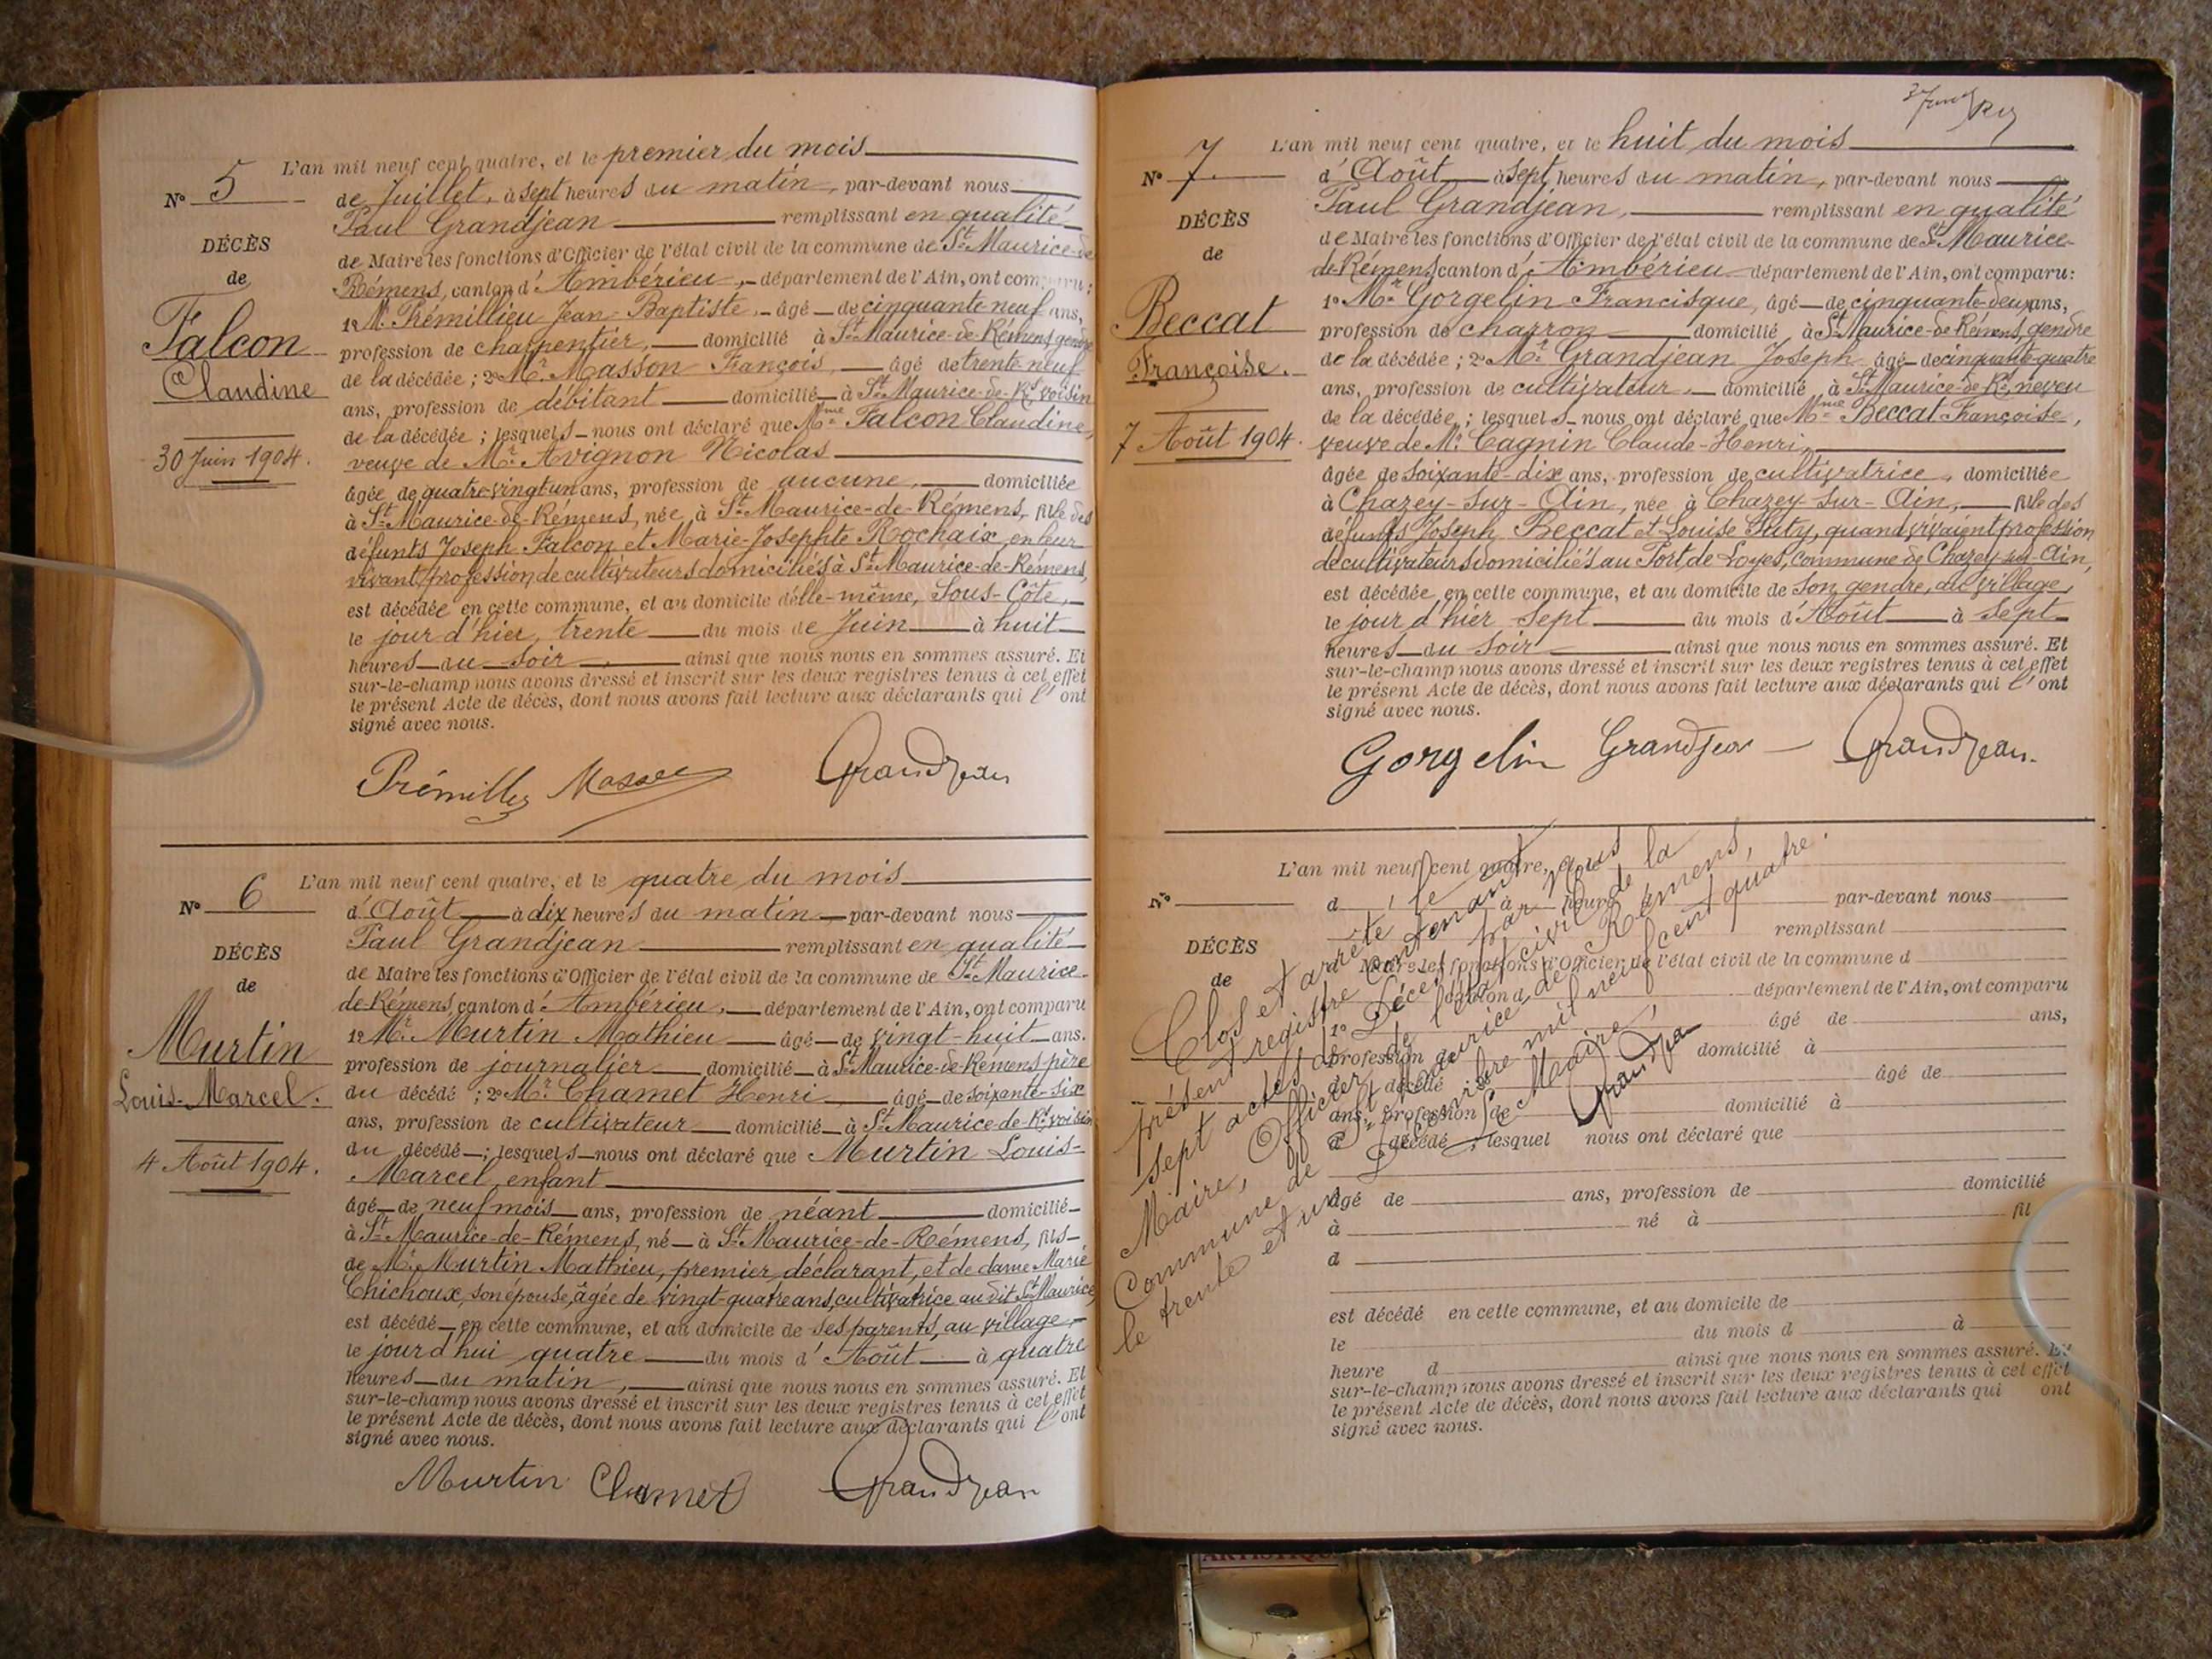 N° 5
DÉCÈS
de
Falcon
Claudine
30 Juin 1904.
L'an mil neuf cent quatre, et le premier du mois
de Juillet, à sept heures du matin, par-devant nous
Paul Grandjean remplissant en qualité
de Maire les fonctions d'Officier de l'état civil de la commune de St Maurice-de
Rémens, canton d'Ambérieu, département de l'Ain, ont comparu :
1° Mr. Prémillieu Jean-Baptiste, âgé de cinquante-neuf ans,
profession de charpentier, domicilié à St Maurice-de-Rémens, gendre
de la décédée ; 2° Mr. Masson François, âgé de trente-neuf
ans, profession de débitant domicilié à St Maurice-de-Rs voisin
de la décédée ; lesquels nous ont déclaré que Mme Falcon Claudine,
veuve de Mr. Avignon Nicolas
âgée de quatre-vingt un ans, profession de aucune, domiciliée
à St Maurice-de-Rémens, née à St Maurice-de-Rémens, fille des
défunts Joseph Falcon et Marie-Josephte Rochaix, en leur
vivant profession de cultivateurs domiciliés à St Maurice-de-Rémens,
est décédée en cette commune, et au domicile d'elle-même, Sous-Côte,
le jour d'hier, trente du mois de Juin à huit
heures du soir, ainsi que nous nous en sommes assuré. Et
sur-le-champ nous avons dressé et inscrit sur les deux registres tenus à cet effet
le présent Acte de décès, dont nous avons fait lecture aux déclarants qui l'ont
signé avec nous.
Masson Grandjean
N° 6
DÉCÈS
de
Murtin
Louis-Marcel.
4 Août 1904.
L'an mil neuf cent quatre, et le quatre du mois
d'Août à dix heures du matin par-devant nous
Paul Grandjean remplissant en qualité
de Maire les fonctions d'Officier de l'état civil de la commune de St Maurice-
de-Rémens, canton d'Ambérieu, département de l'Ain, ont comparu
1° Mr. Murtin Mathieu âgé de vingt-huit ans.
profession de journalier domicilié à St Maurice-de-Rémens père
du décédé ; 2° Mr. Chamet Henri âgé de soixante-six
ans, profession de cultivateur domicilié à St Maurice-de-Rs voisin
du décédé ; lesquels nous ont déclaré que Murtin Louis-
Marcel, enfant
âgé de neuf mois ans, profession de néant domicilié
à St Maurice-de-Rémens, né à St Maurice-de-Rémens, fils
de Mr. Murtin Mathieu, premier déclarant, et de dame Marie
Chichoux, son épouse, âgée de vingt-quatre ans, cultivatrice au dit St Maurice,
est décédé en cette commune, et au domicile de ses parents, au village,
le jour d'hui quatre du mois d'Août à quatre
heures du matin, ainsi que nous nous en sommes assuré. Et
sur-le-champ nous avons dressé et inscrit sur les deux registres tenus à cet effet
le présent Acte de décès, dont nous avons fait lecture aux déclarants qui l'ont
signé avec nous.
Murtin Chamet Grandjean
N° 7
DÉCÈS
de
Beccat
Françoise.
7 Août 1904.
L'an mil neuf cent quatre, et le huit du mois
d'Août à sept heures du matin, par-devant nous
Paul Grandjean, remplissant en qualité
de Maire les fonctions d'Officier de l'état civil de la commune de St Maurice-
de-Rémens canton d'Ambérieu département de l'Ain, ont comparu :
1° Mr Gorgelin Francisque, âgé de cinquante-deux ans,
profession de charron domicilié à St Maurice-de-Rémens, gendre
de la décédée ; 2° Mr. Grandjean Joseph âgé de cinquante-quatre
ans, profession de cultivateur, domicilié à St Maurice-de-Rs, neveu
de la décédée ; lesquels nous ont déclaré que Mme Beccat Françoise,
veuve de Mr. Cagnin Claude-Henri,
âgée de soixante-dix ans, profession de cultivatrice, domiciliée
à Chazey-sur-Ain, née à Chazey-sur-Ain, fille des
défunts Joseph Beccat et Louise quand vivaient profession
de cultivateurs domiciliés au Port de Loyes, commune de Chazey-sur-Ain,
est décédée en cette commune, et au domicile de son gendre, au village,
le jour d'hier sept du mois d'Août à sept
heures du soir ainsi que nous nous en sommes assuré. Et
sur-le-champ nous avons dressé et inscrit sur les deux registres tenus à cet effet
le présent Acte de décès, dont nous avons fait lecture aux déclarants qui l'ont
signé avec nous.
Gorgelin Grandjean Grandjean.
N°
DÉCÈS
de
L'an mil neuf cent quatre,
d à heure par-devant nous
remplissant
Maire les fonctions d'Officier de l'état civil de la commune d
canton d département de l'Ain, ont comparu
1° âgé de ans,
profession de domicilié à
de décédé âgé de
ans, profession de domicilié à
d décédé ; lesquel nous ont déclaré que
âgé de ans, profession de domicilié
à né à fil
d
est décédé en cette commune, et au domicile de
le du mois d à
heure d ainsi que nous nous en sommes assuré. Et
sur-le-champ nous avons dressé et inscrit sur les deux registres tenus à cet effet
le présent Acte de décès, dont nous avons fait lecture aux déclarants qui ont
signé avec nous.
Clos et arrêté le
présent registre contenant
sept actes de Décès par nous
Maire, Officier de l'état civil de la
Commune de St Maurice de Rémens,
le trente et un Décembre mil neuf cent quatre.
Le Maire,
Grandjean